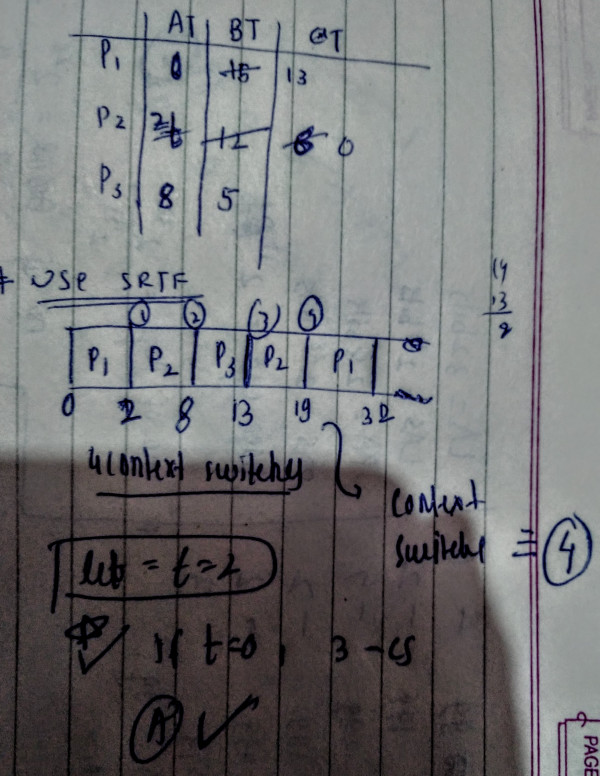 AT BT CT
P1 0 15 13
P2 2 12 6 0
P3 8 5
use SRTF
14
13
1 2 (3) 4
P1 P2 P3 P2 P1
0 2 8 13 19 32
4 context switchs
context
switchs = 4
let = t=2
If t=0, 3-cs
A
PAGE